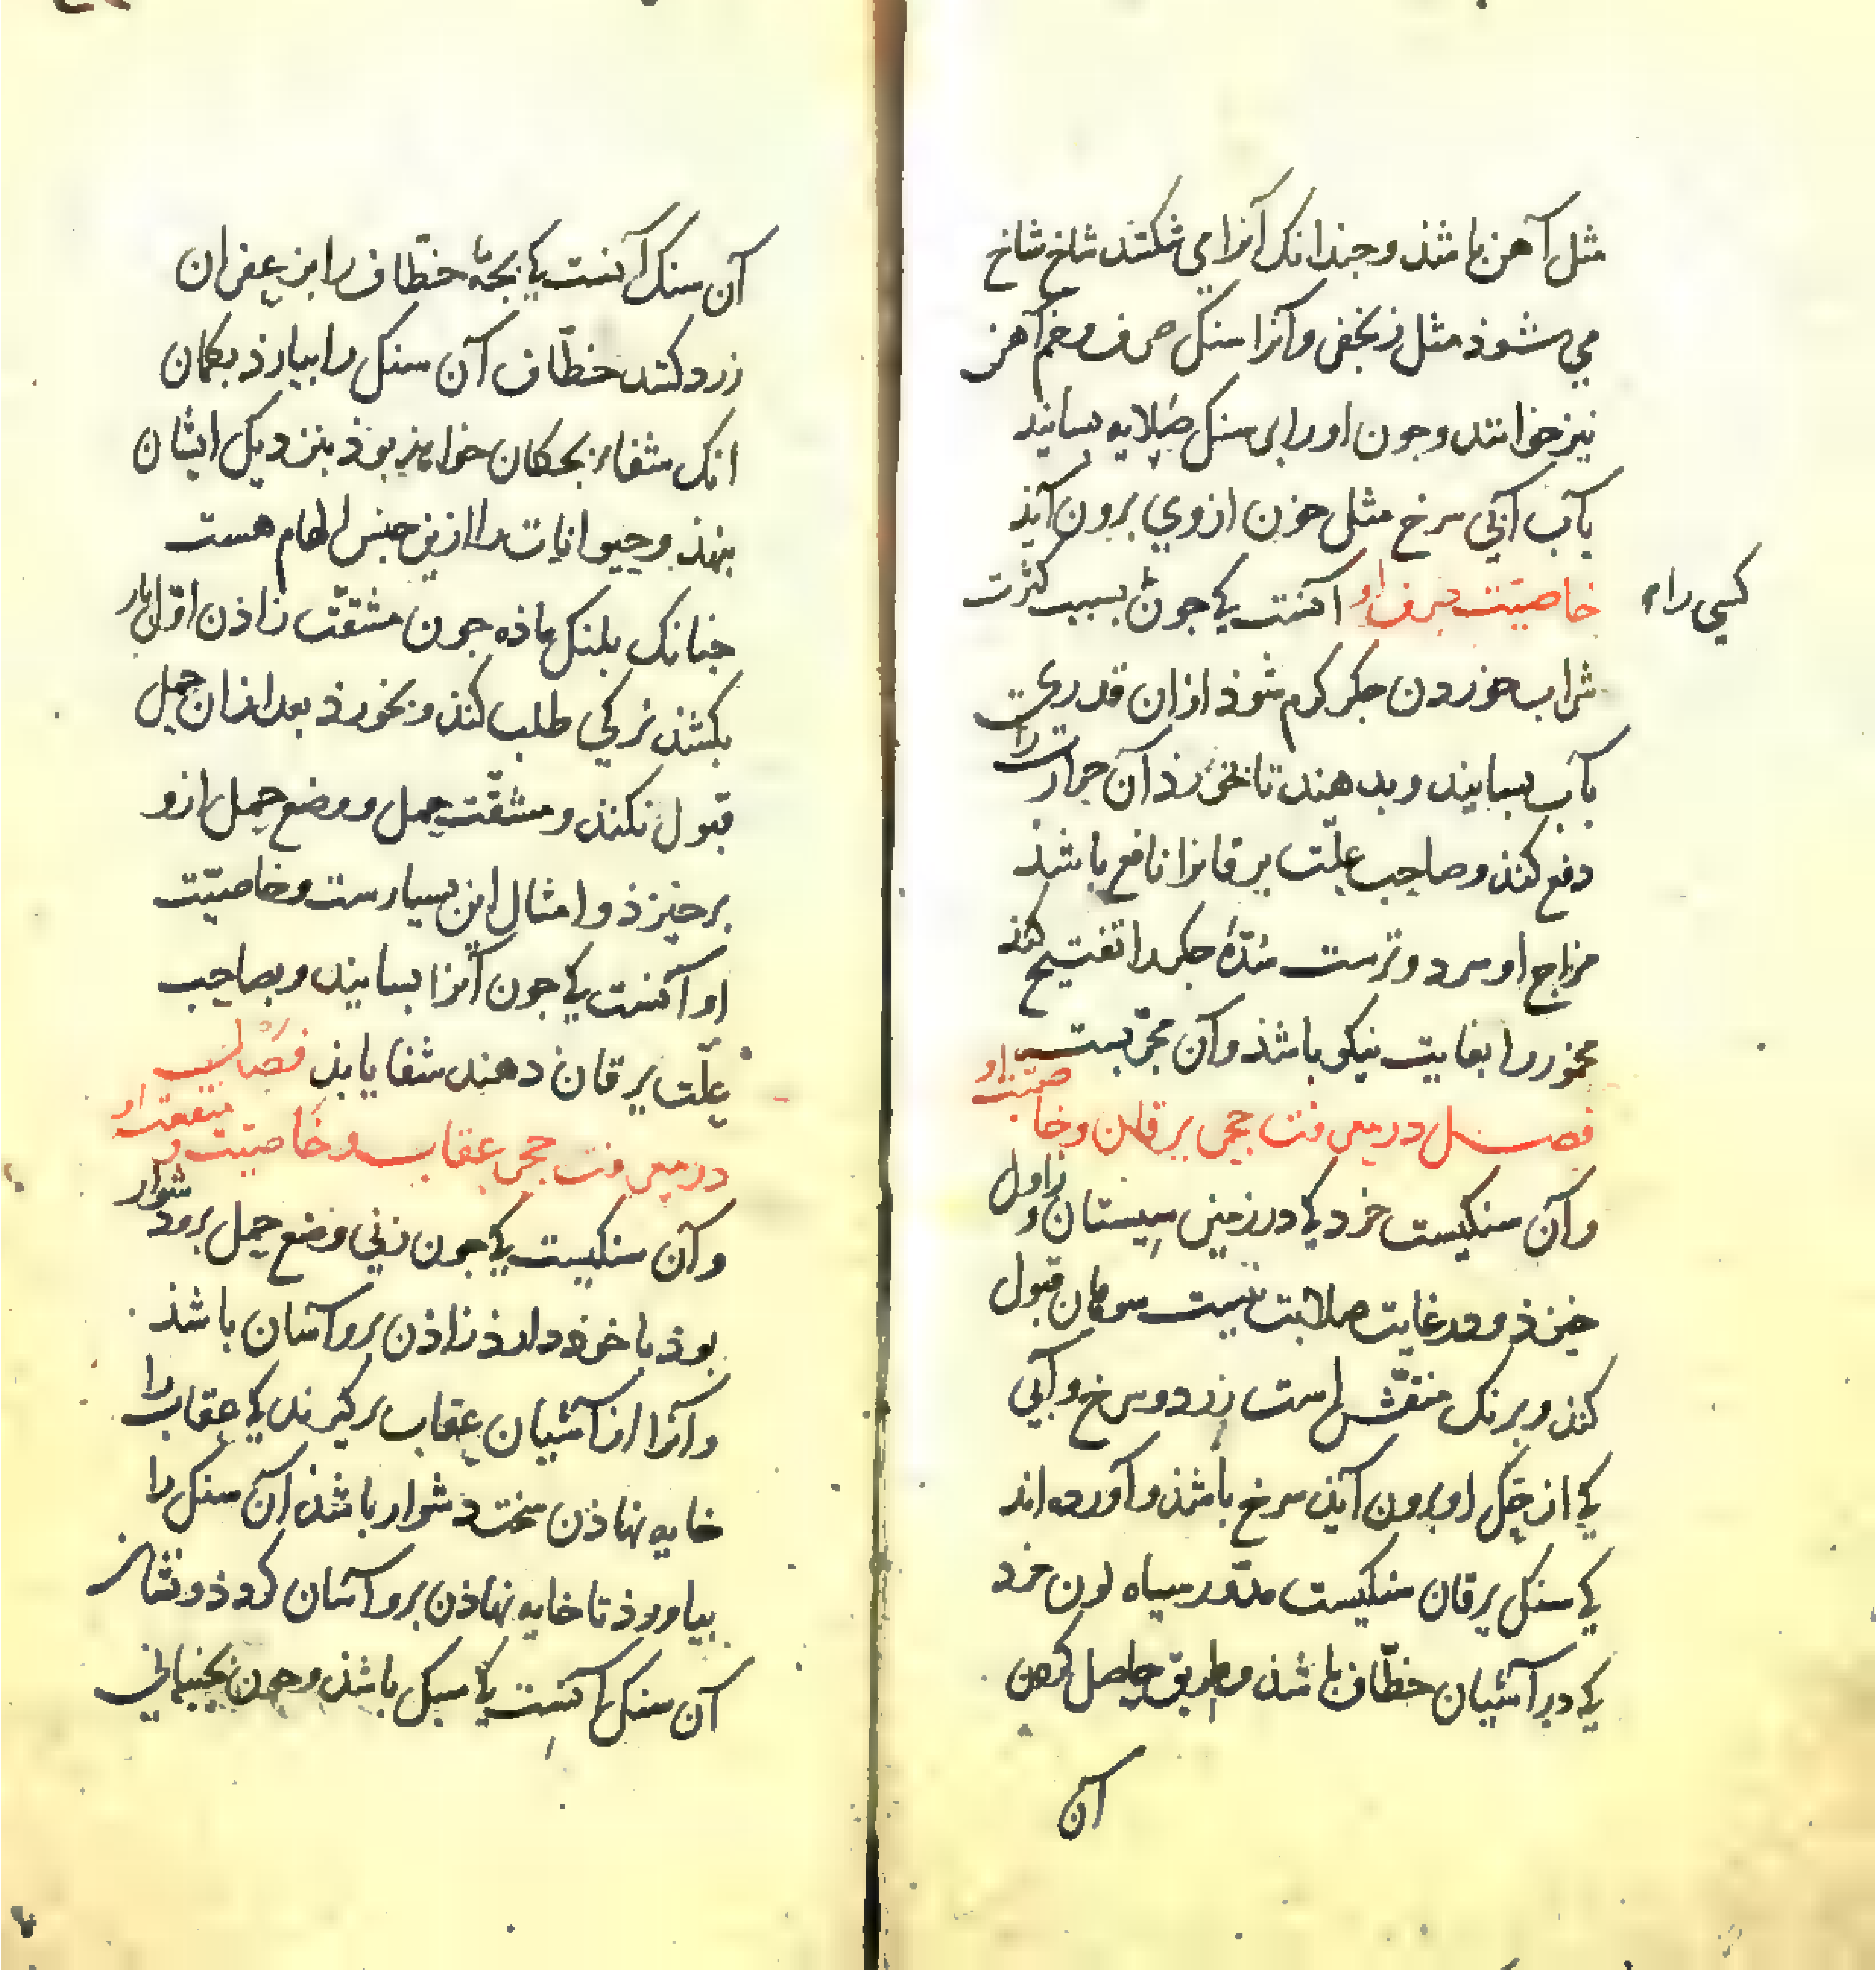 مثل آهن باشذ و جندانک آنرا می شکنند شاخ شاخ
می شوذ مثل زنجفر و آنرا سنک صرف و خم آهن
نیز خوانند و جون او را بر سنک صلایه بسایند
بآب آبی سرخ مثل خون از وی برون آیذ
خاصیّت صرف او آنست که جون بسبب کثرت
کسی را
شراب خوردن جکر کرم شوذ از آن قدری
بآب بسایند و بدهند تا بخورذ آن حرارت را
دفع کند و صاحب علّت یرقانرا نافع باشذ
مزاج او سرد و ترست سُدّهٔ جکر را تفتیح کند
مخمور را بغایت نیکو باشذ و آن مجرّبست
فصل در معرفت حجر یرقان و خاصیّت او
و آن سنکیست خرد که در زمین سیستان و زاول
خیزذ و در غایت صلابت نیست سوهان قبول
کند و برنک منقّش است زرد و سرخ و آبی
که از حکّ او برون آیذ سرخ باشذ و آورده اند
که سنک یرقان سنکیست مدوّر سیاه لون خرد
که در آشیان خطّاف باشذ و طریق حاصل کردن
آن
آن سنک آنست که بجهٔ خطّاف را بزعفران
زرد کنند خطّاف آن سنک را بیارذ بکمان
انک شفاء بجکان خواهذ بوذ بنزدیک ایشان
بنهذ و حیوانات را ازین جنس الهام هست
جنانک بلنک ماذه جون مشقّت زاذن اوّل بار
بکشذ نرکی طلب کند و بخورذ بعد از آن حمل
قبول نکند و مشقّت حمل و وضع حمل از و
برخیزذ و امثال این بسیارست و خاصیّت
او آنست که جون آنرا بسایند و بصاحب
علّت یرقان دهند شفا یابذ فصل
در معرفت حجر عقاب و خاصیّت و منفعت او
و آن سنکیست که جون زنی وضع حمل برو دشوار
بوذ با خوذ دارذ زاذن برو آسان باشذ
و آنرا از آشیان عقاب برکیرند که عقاب را
خایه نهاذن سخت دشوار باشذ آن سنک را
بیاورذ تا خایه نهاذن برو آسان کردذ و نشان
آن سنک آنست که سبک باشذ و جون بجنبانی